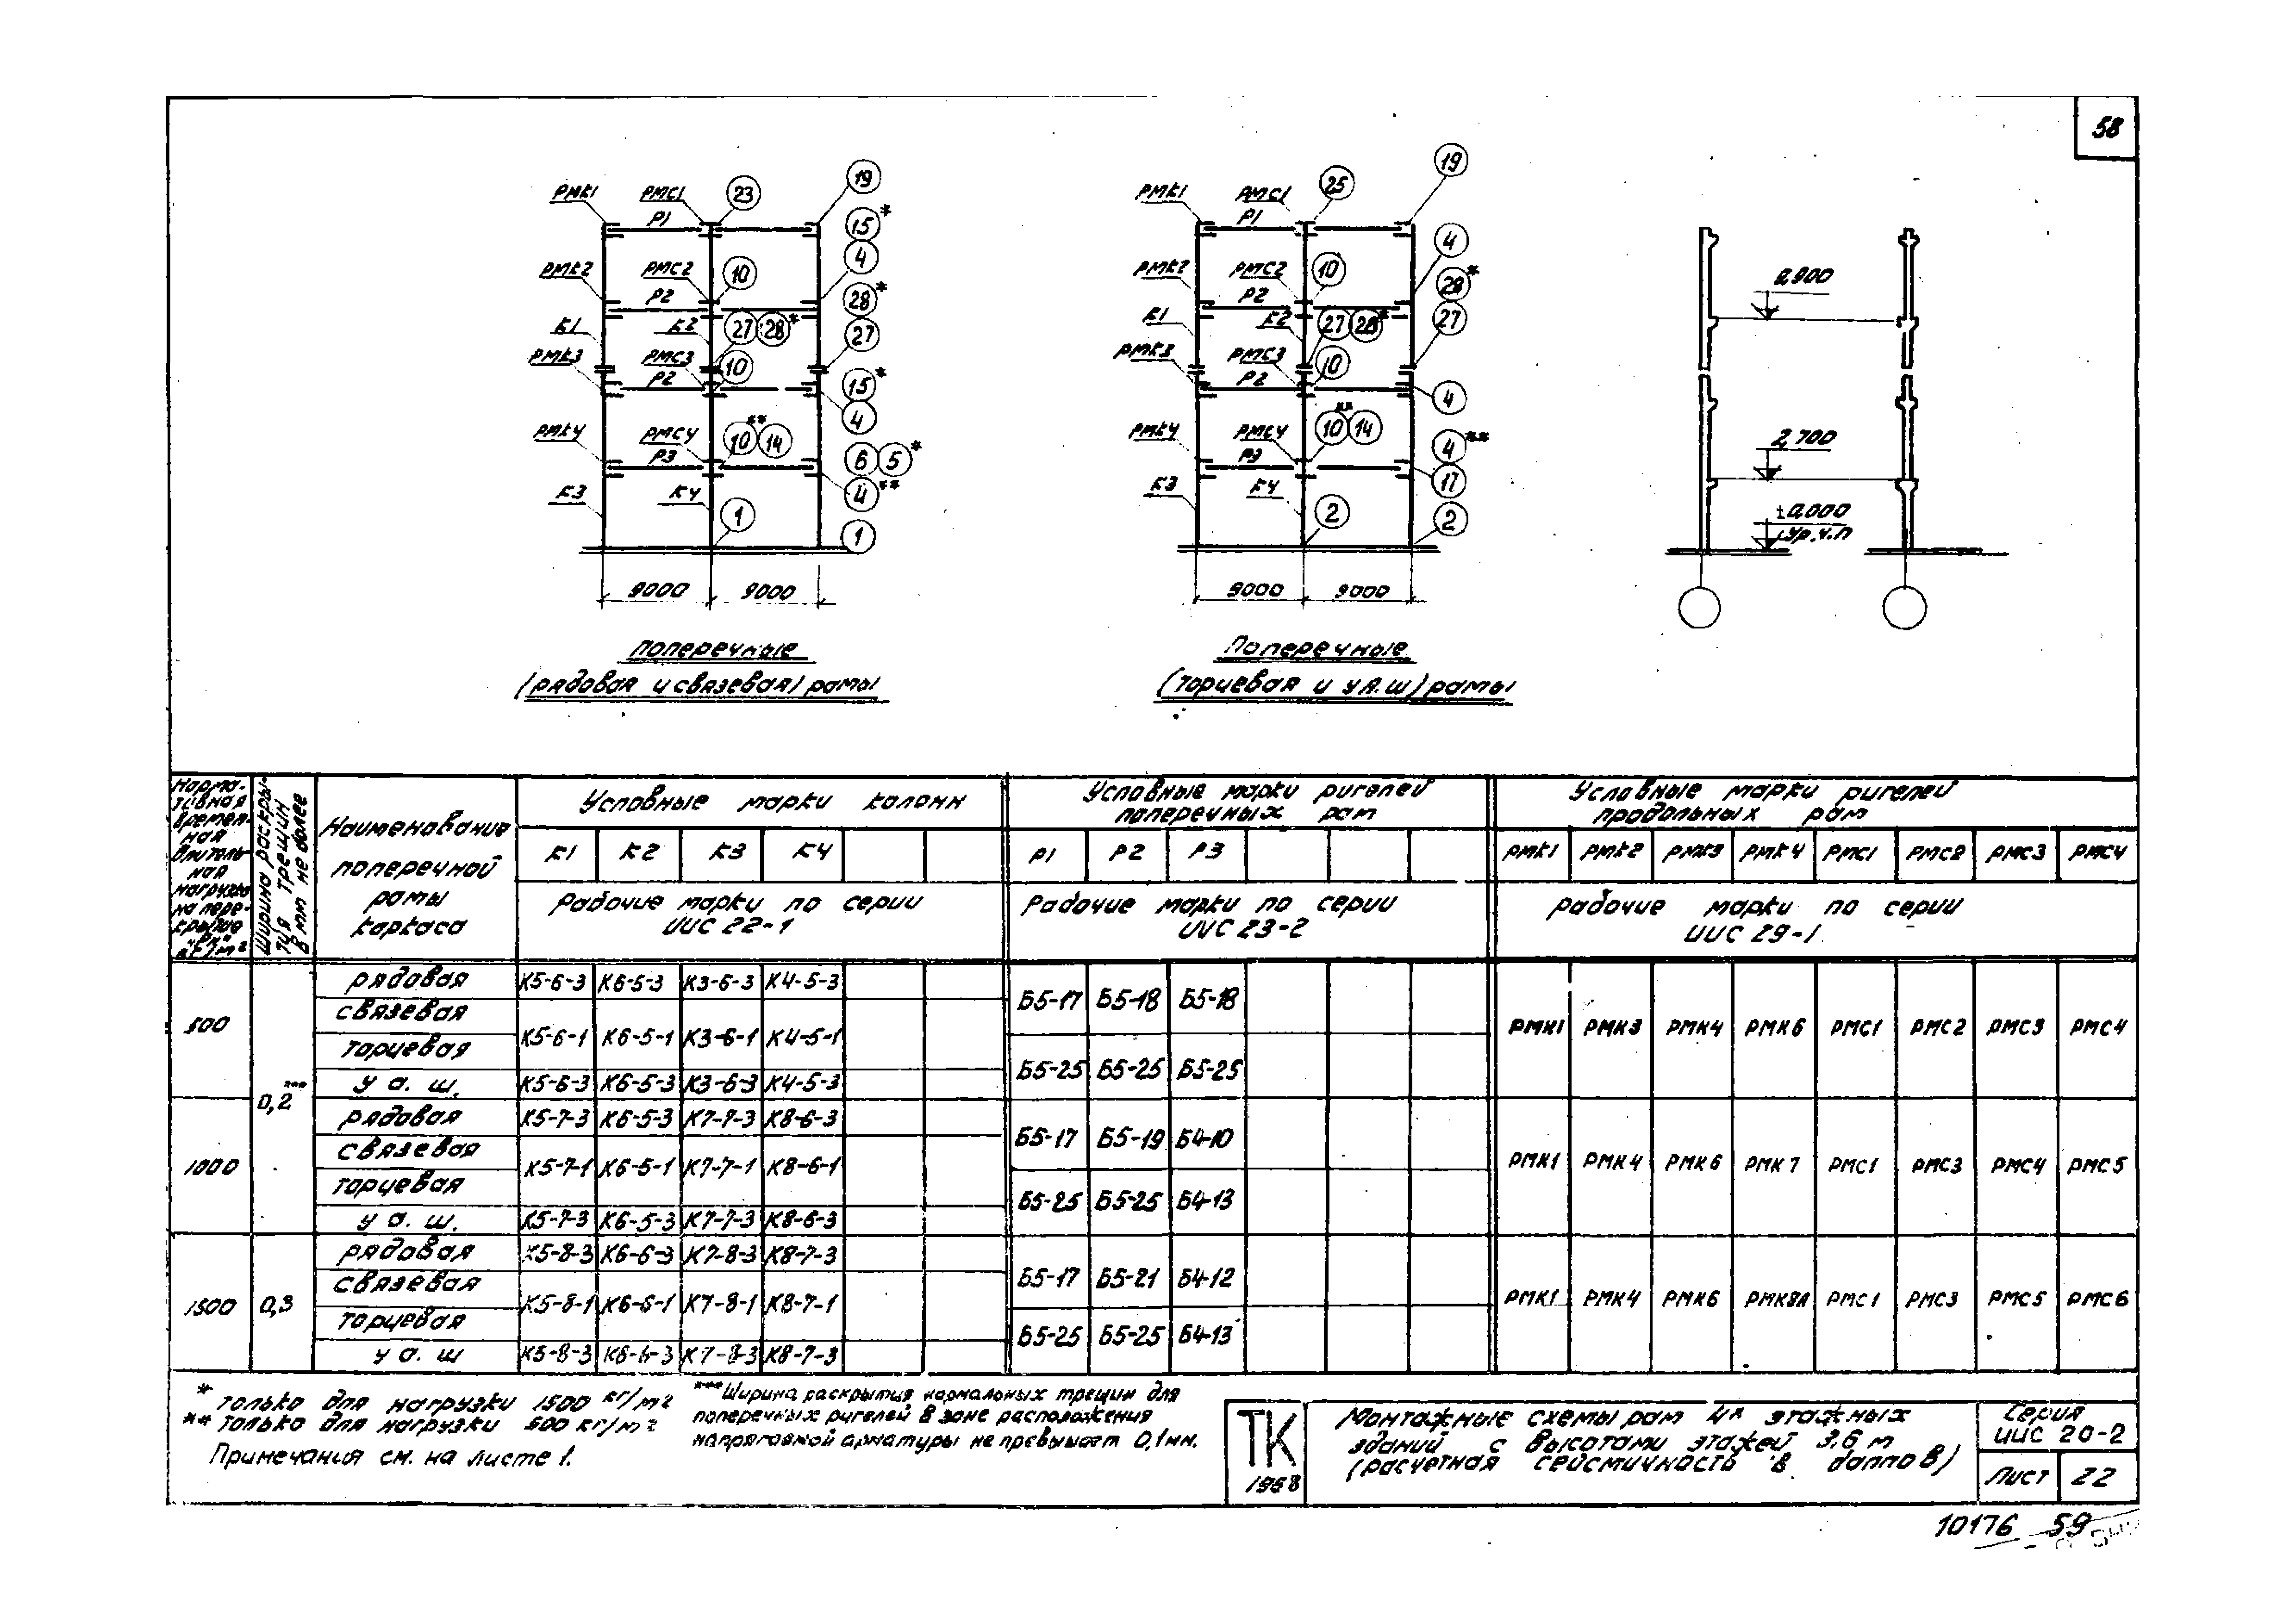 58
РМК1 РМС1 23 19
Р1 15*
РМК2 РМС2 10 4
Р2 28*
К1 К2 27 28* 27
РМК3 РМС3 10 15*
Р2 4
РМК4 РМС4 10** 14 6 5*
Р3 4**
К3 К4 1 1
9000 9000
Поперечные
(рядовая и связевая) рамы
РМК1 РМС1 25 19
Р1
РМК2 РМС2 10 4
Р2 28*
К1 К2 27 28* 27
РМК3 РМС3 10
Р2 4
РМК4 РМС4 10** 14 4**
Р3 17
К3 К4 2 2
9000 9000
Поперечные
(торцевая и у а.ш) рамы
6,900
2,700
±0,000
Ур.ч.п
Норма-
тивная
времен-
ная
длитель-
ная
нагрузка
на пере-
крытие
"Рн"
кг/м²
Ширина раскры-
тия трещин
в мм не более
Наименование
поперечной
рамы
каркаса
Условные марки колонн
К1 К2 К3 К4
Рабочие марки по серии
ИИС 22-1
Условные марки ригелей
поперечных рам
Р1 Р2 Р3
Рабочие марки по серии
ИИС 23-2
Условные марки ригелей
продольных рам
РМК1 РМК2 РМК3 РМК4 РМС1 РМС2 РМС3 РМС4
Рабочие марки по серии
ИИС 29-1
500
0,2***
рядовая К5-6-3 К6-5-3 К3-6-3 К4-5-3
связевая
Б5-17 Б5-18 Б5-18
К5-6-1 К6-5-1 К3-6-1 К4-5-1
торцевая
у а. ш. К5-6-3 К6-5-3 К3-6-3 К4-5-3
Б5-25 Б5-25 Б5-25
РМК1 РМК3 РМК4 РМК6 РМС1 РМС2 РМС3 РМС4
1000
рядовая К5-7-3 К6-5-3 К7-7-3 К8-6-3
связевая
Б5-17 Б5-19 Б4-10
К5-7-1 К6-5-1 К7-7-1 К8-6-1
торцевая
у а. ш. К5-7-3 К6-5-3 К7-7-3 К8-6-3
Б5-25 Б5-25 Б4-13
РМК1 РМК4 РМК6 РМК7 РМС1 РМС3 РМС4 РМС5
1500 0,3
рядовая К5-8-3 К6-6-3 К7-8-3 К8-7-3
связевая
Б5-17 Б5-21 Б4-12
К5-8-1 К6-6-1 К7-8-1 К8-7-1
торцевая
у а. ш К5-8-3 К6-6-3 К7-8-3 К8-7-3
Б5-25 Б5-25 Б4-13
РМК1 РМК4 РМК6 РМК8А РМС1 РМС3 РМС5 РМС6
* только для нагрузки 1500 кг/м²
** только для нагрузки 500 кг/м²
Примечания см. на листе 1.
*** Ширина раскрытия нормальных трещин для
поперечных ригелей в зоне расположения
напрягаемой арматуры не превышает 0,1мм.
ТК
1968
Монтажные схемы рам 4х этажных
зданий с высотами этажей 3,6 м
(расчетная сейсмичность 8 баллов)
Серия
ИИС 20-2
Лист 22
10176 59